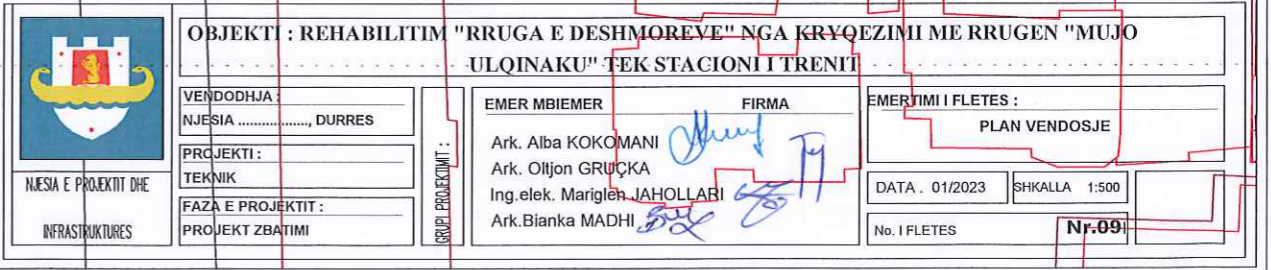 OBJEKTI : REHABILITIM "RRUGA E DESHMOREVE" NGA KRYQEZIMI ME RRUGEN "MUJO
ULQINAKU" TEK STACIONI I TRENIT
NJESIA E PROJEKTIT DHE
INFRASTRUKTURES
VENDODHJA :
NJESIA .................., DURRES
PROJEKTI :
TEKNIK
FAZA E PROJEKTIT :
PROJEKT ZBATIMI
GRUPI PROJEKTIMIT :
EMER MBIEMER FIRMA
Ark. Alba KOKOMANI
Ark. Oltjon GRUÇKA
Ing.elek. Mariglen JAHOLLARI
Ark.Bianka MADHI
EMERTIMI I FLETES :
PLAN VENDOSJE
DATA . 01/2023 SHKALLA 1:500
No. I FLETES Nr.09